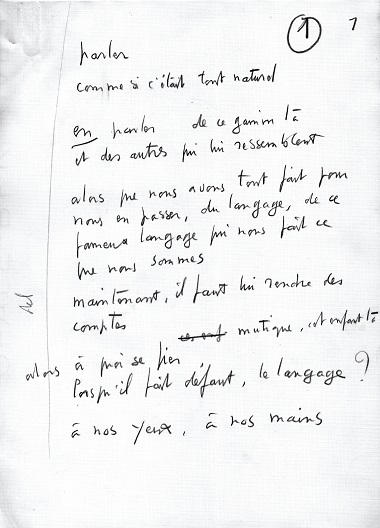 1 1
parler
comme si c'était tout naturel
en parler de ce gamin là
et des autres qui lui ressemblent
alors que nous avons tout fait pour
nous en passer, du langage, de ce
fameux langage qui nous fait ce
que nous sommes
maintenant, il faut lui rendre des
comptes mutique, cet enfant là
alors à quoi se fier
lorsqu'il fait défaut, le langage ?
à nos yeux, à nos mains